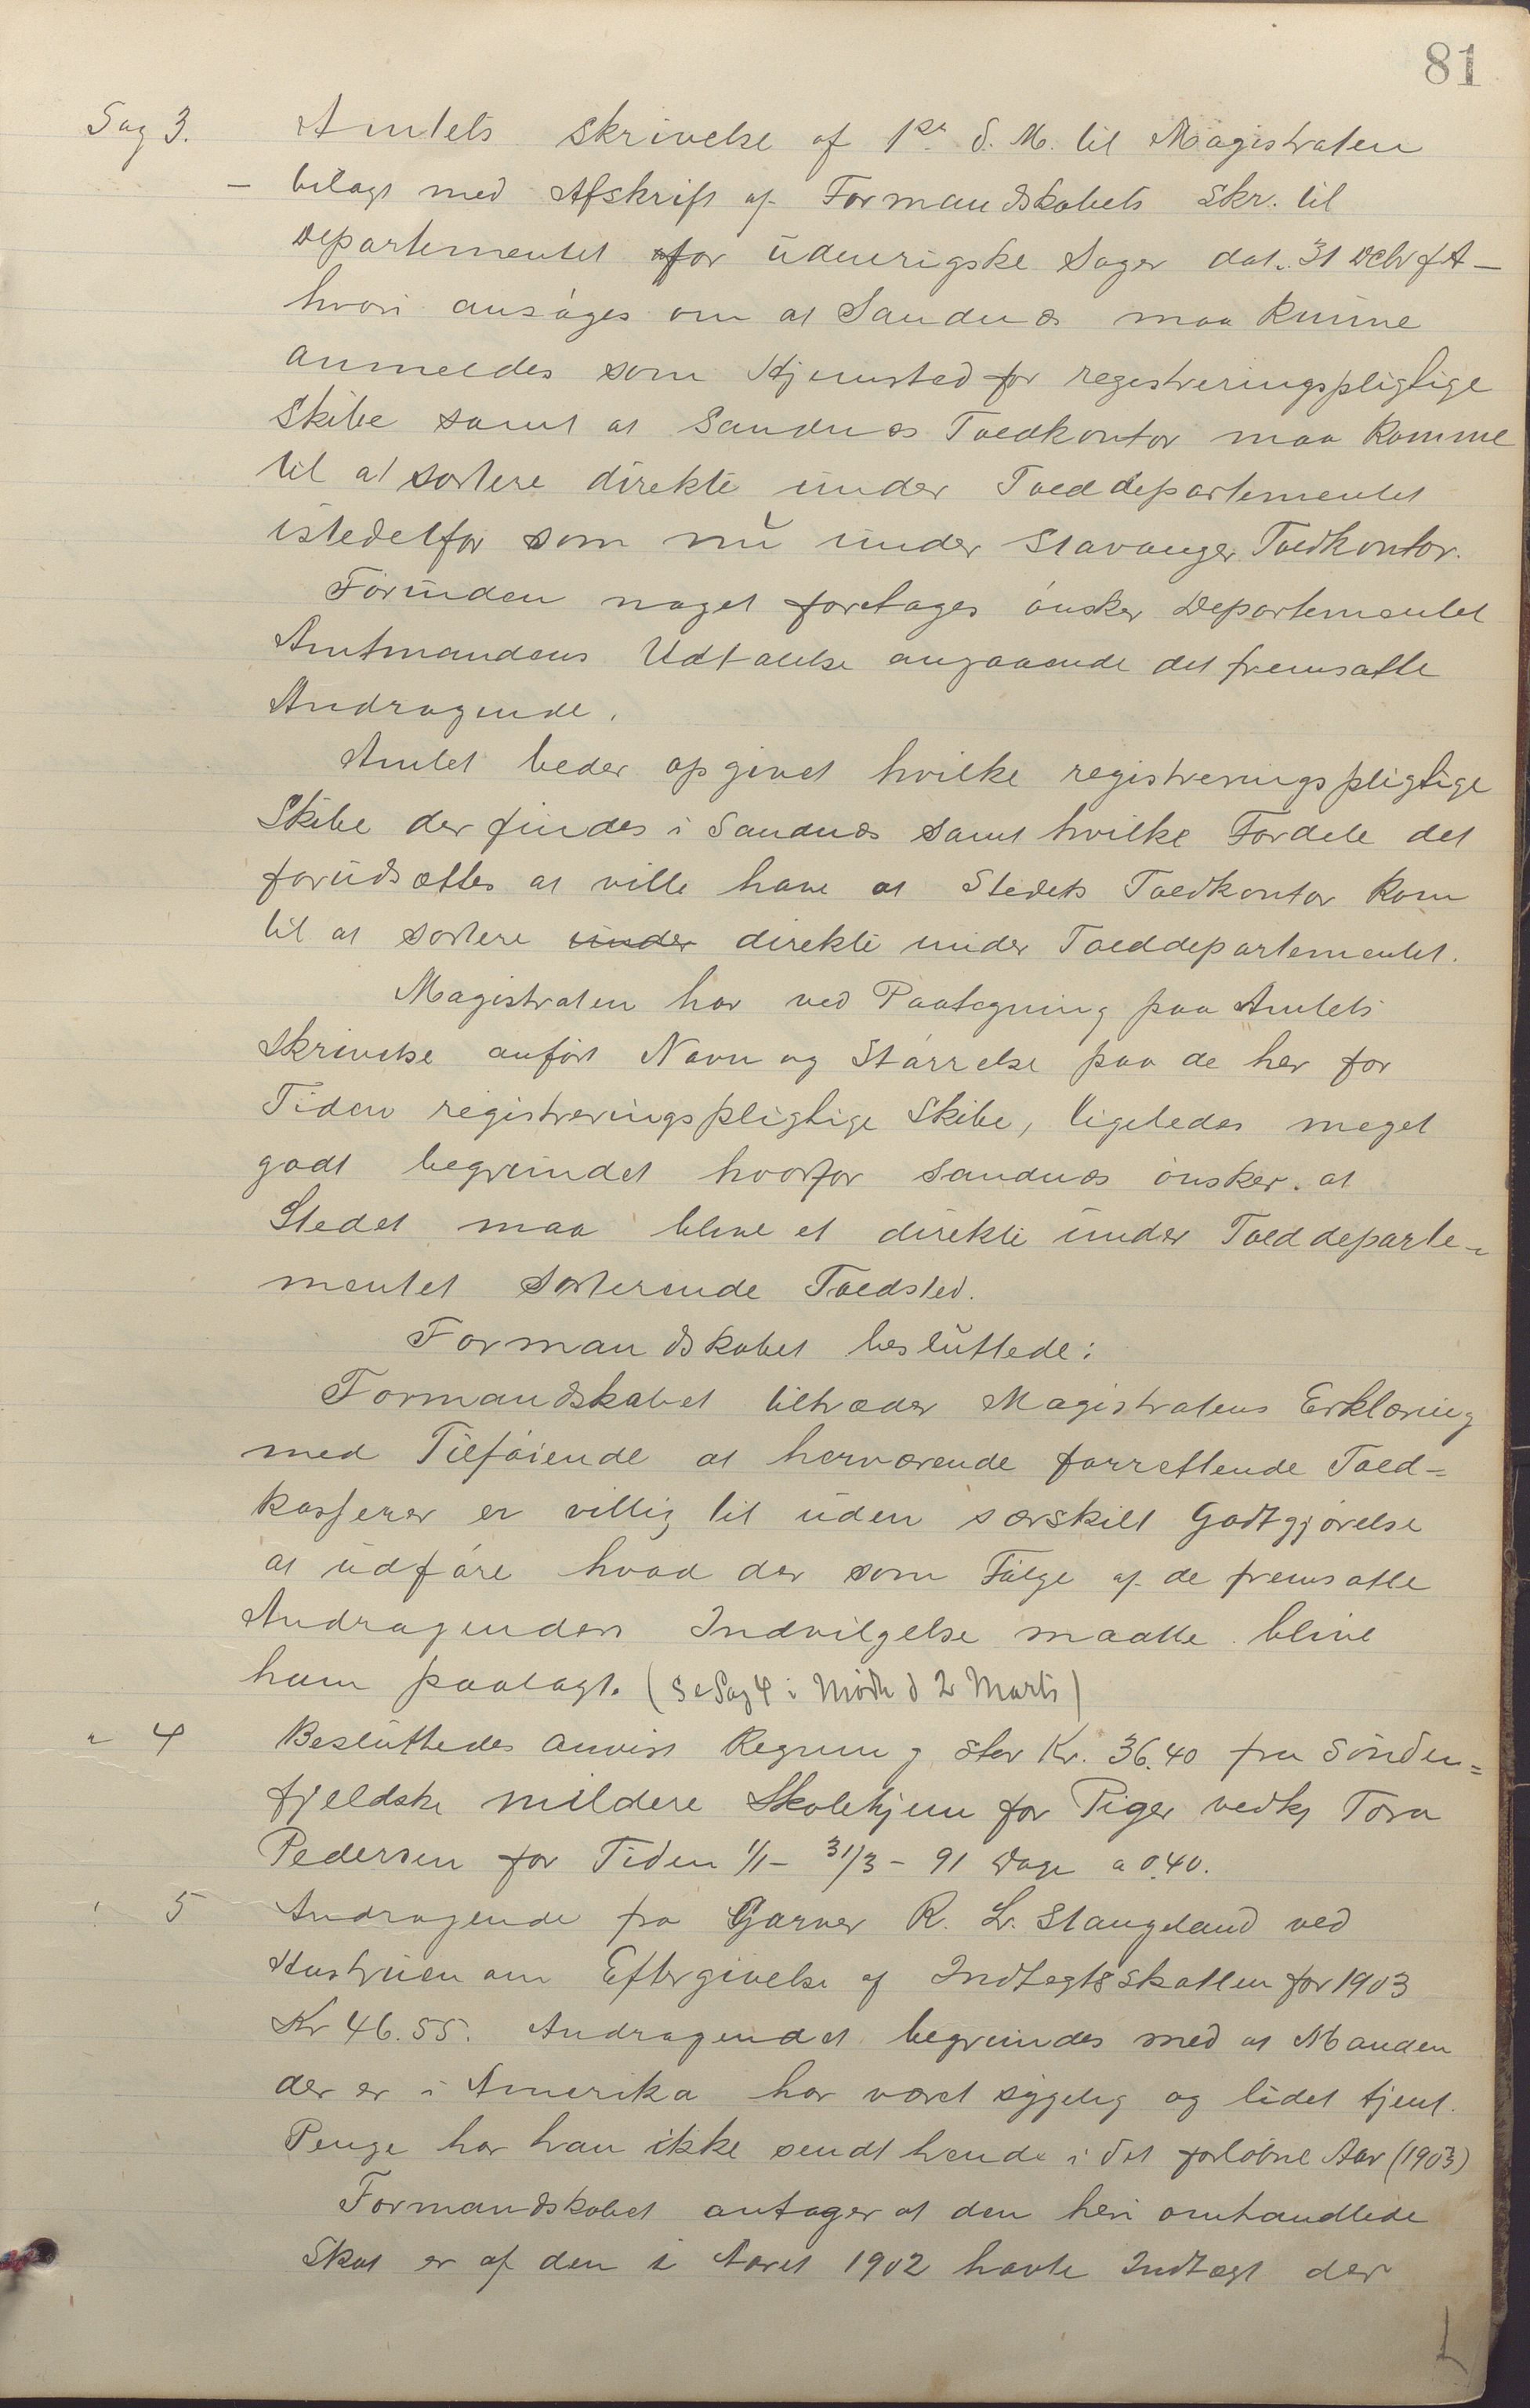 81
Sag 3. Amtets skrivelse af 1ste d. M. til Magistraten
– bilagt med Afskrift af Formandskabets Skr. til
Departementet for udenrigske Sager dat. 31 Decbr f A –
hvori ansøges om at Sandnæs maa kunne
anmeldes som Hjemsted for registreringspligtige
Skibe samt at Sandnæs Toldkontor maa komme
til at sortere direkte under Tolddepartementet
istedetfor som nu under Stavanger Toldkontor.
Forinden noget foretages ønsker Departementet
Amtmandens Udtalelse angaaende det fremsatte
Andragende.
Amtet beder opgivet hvilke registreringspligtige
Skibe der findes i Sandnæs samt hvilke Fordele det
forudsættes at ville have at Stedets Toldkontor kom
til at sortere under direkte under Tolddepartementet.
Magistraten har ved Paategning paa Amtets
Skrivelse anført Navn og Størrelse paa de her for
Tiden registreringspligtige Skibe, ligeledes meget
godt begrundet hvorfor Sandnæs ønsker at
Stedet maa blive et direkte under Tolddeparte-
mentet sorterende Toldsted.
Formandskabet besluttede:
Formandskabet tiltræder Magistratens Erklæring
med Tilføiende at herværende forrettende Told-
kasserer er villig til uden særskilt Godtgjørelse
at udføre hvad der som Følge af de fremsatte
Andragenders Indvilgelse maatte blive
ham paalagt. (Se Sag 4 i Møde d 2 Marts)
" 4 Besluttedes anvist Regning stor Kr. 36.40 fra Sønden=
fjeldske mildere Skolehjem for Piger vedk Tora
Pedersen for Tiden 1/1 – 31/3 – 91 Dage a 0.40.
" 5 Andragende fra Garver R. L. Stangeland ved
Hustruen om Eftergivelse af Indtægtsskatten for 1903
Kr 46.55. Andragendet begrundes med at Manden
der er i Amerika har været sygelig og lidet tjent.
Penge har han ikke sendt hende i det forløbne Aar (1903)
Formandskabet antager at den heri omhandlede
Skat er af den i Aaret 1902 havte Indtægt der